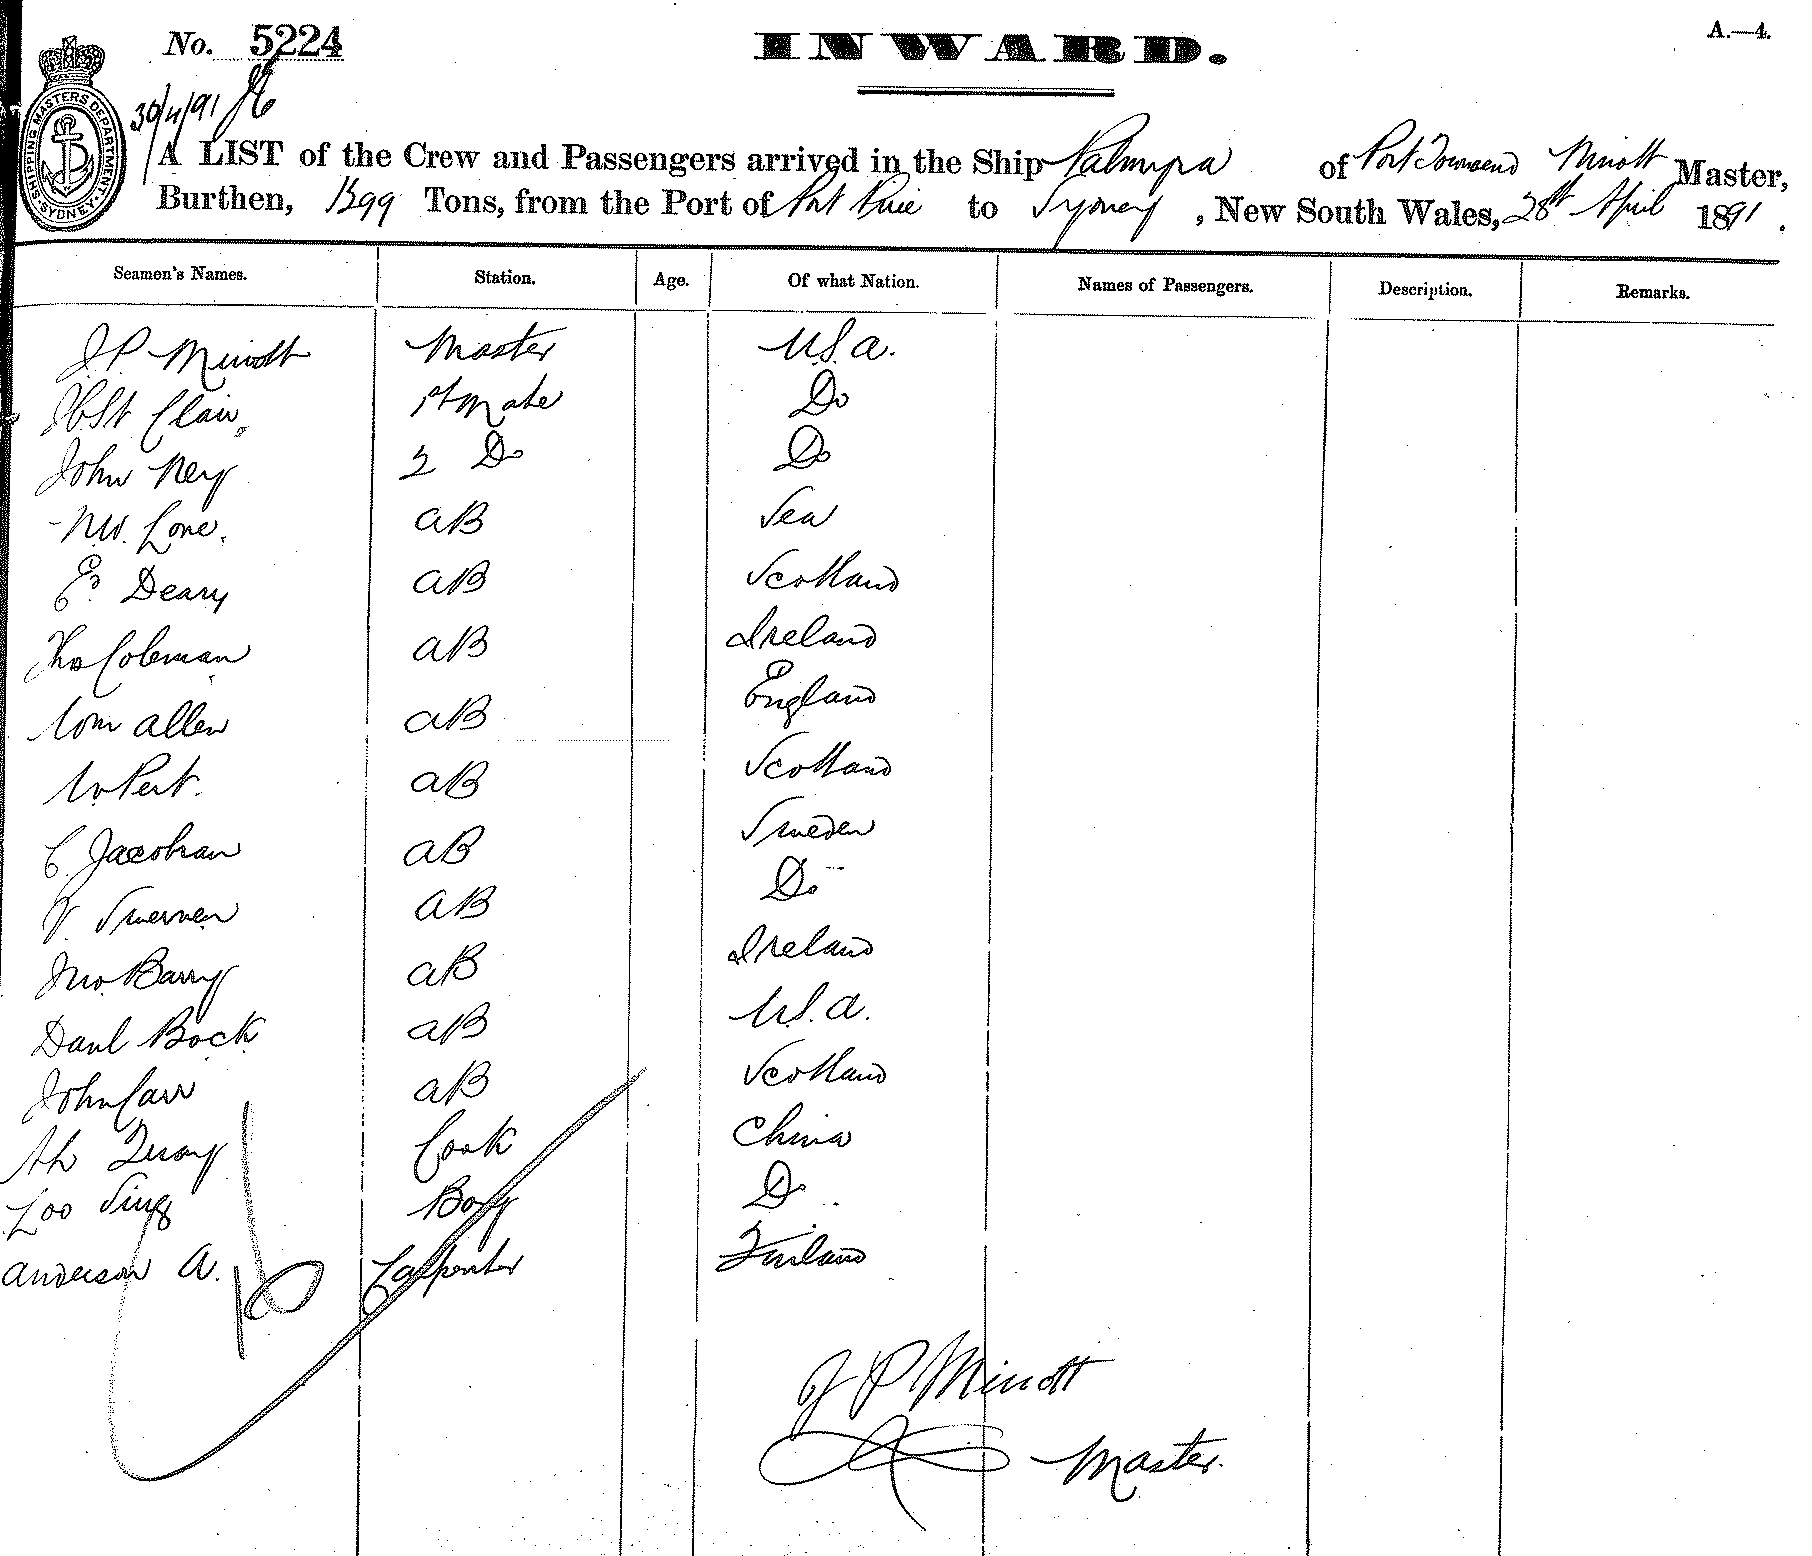 No. 5224
INWARD.
A.—4.
30/4/91
SHIPPING MASTERS DEPARTMENT SYDNEY
A LIST of the Crew and Passengers arrived in the Ship Palmyra of Port Townsend Minott Master,
Burthen, 1399 Tons, from the Port of Port Pirie to Sydney, New South Wales, 28th April 1891.
Seamen's Names. Station. Age. Of what Nation. Names of Passengers. Description. Remarks.
J.P. Minott Master U.S.A.
St Clair 1st Mate Do
John Ney 2 Do Do
N.W. Lone. AB Sea
E. Deary AB Scotland
Tho Coleman AB Ireland
Wm Allen AB England
W Pert. AB Scotland
C. Jacobsan AB Sweden
AB Do
Jno. Barry AB Ireland
Danl Bock AB U.S.A.
John Carr AB Scotland
Ah Cook China
Loo Sing Boy Do
Anderson A. Carpenter Finland
J P Minott
Master.